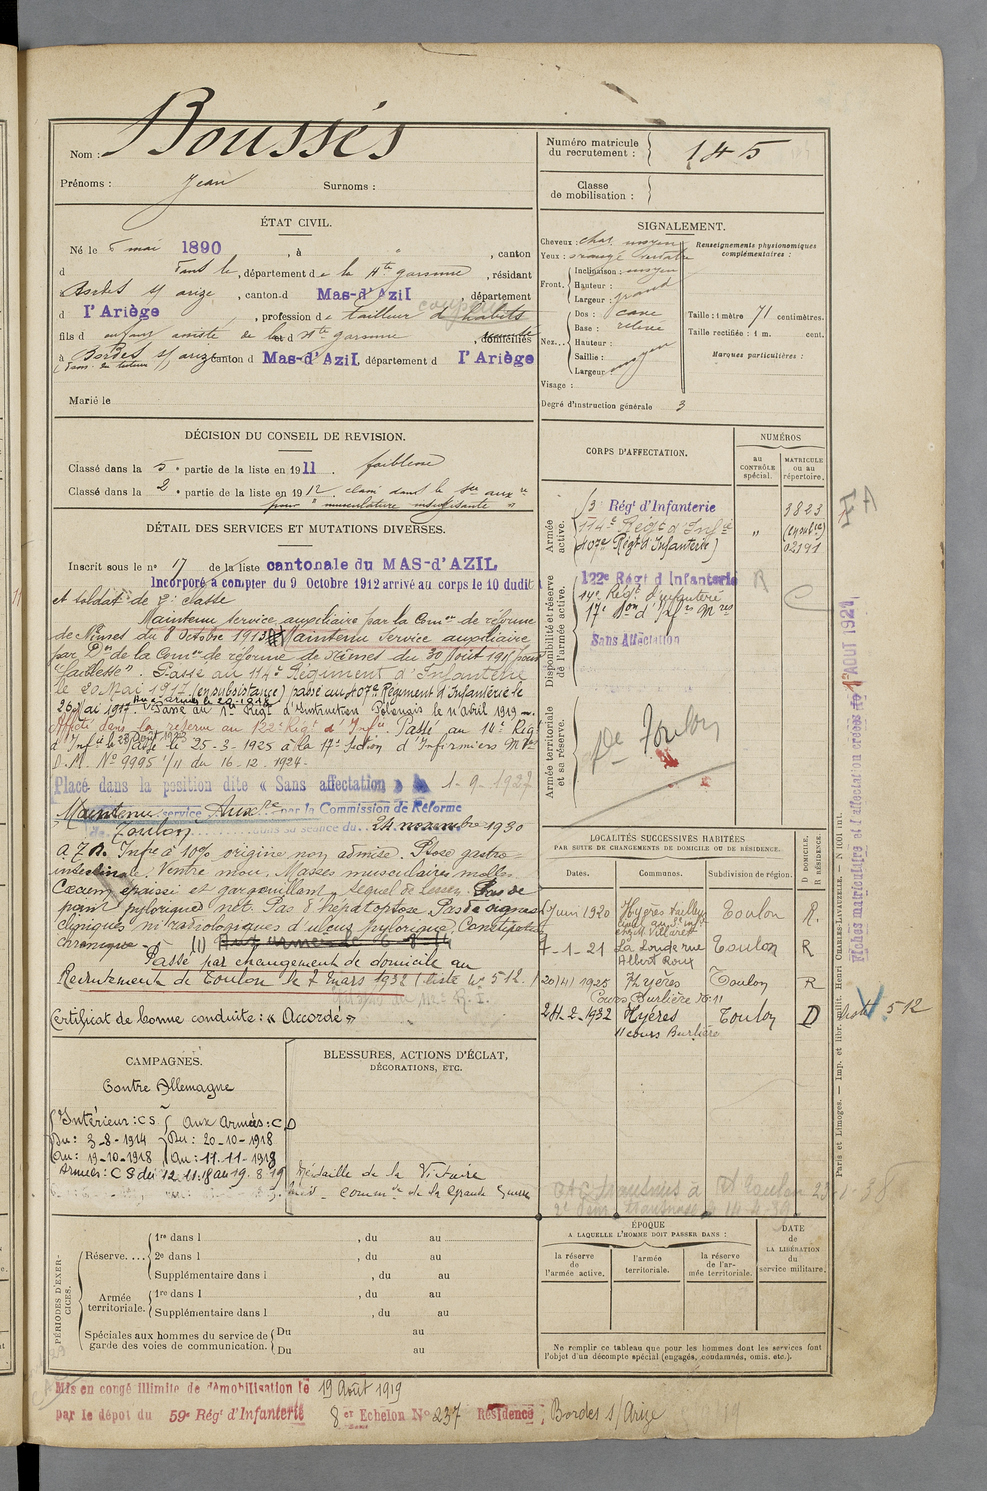 Nom : Boussés
Prénoms : Jean Surnoms :
Numéro matricule du recrutement : 145
Classe de mobilisation :
ÉTAT CIVIL.
Né le mai 1890, à " , canton
d , département de la Hte garonne, résidant
Bordes s/ arize, canton d Mas-d'Azil, département
d l'Ariège, profession de tailleur d'habits
fils d enfant assisté de la Hte garonne, domiciliés
à Bordes s/ arize canton d Mas-d'Azil département d l'Ariège
Marié le
SIGNALEMENT.
Cheveux : chat. moyen
Yeux : orangé
Front. Inclinaison : moyen
Hauteur :
Largeur : grand
Nez... Dos : cave
Base : relevée
Hauteur :
Saillie :
Largeur : moyen
Visage :
Degré d'instruction générale 3
Renseignements physionomiques complémentaires :
Taille : 1 mètre 71 centimètres.
Taille rectifiée : 1 m. cent.
Marques particulières :
DÉCISION DU CONSEIL DE REVISION.
Classé dans la 5e partie de la liste en 1911. faiblesse
Classé dans la 2e partie de la liste en 1912. classé dans le
pour " musculature insuffisante "
DÉTAIL DES SERVICES ET MUTATIONS DIVERSES.
Inscrit sous le n° 17 de la liste cantonale du MAS-d'AZIL
Incorporé à compter du 9 Octobre 1912 arrivé au corps le 10 dudit
et soldat de 2e classe
Maintenu service auxiliaire par la Comon de réforme
de Nîmes du 8 Octobre 1913. Maintenu Service auxiliaire
par Don de la Comon de réforme de Nîmes du 30 Août 1915 pour
"faiblesse". Passé au 114e Régiment d'Infanterie
le 20 Mai 1917 (en subsistance) passé au 107e Régiment d'Infanterie le
26 Mai 1917. Passé au 1er Régt d'Instruction Polonais le 11 Avril 1919
Affecté dans la réserve au 122e Régt d'Infie. Passé au 14e Régt
d'Infie le 23 Août 1923
Passé le 25-3-1925 à la 17e Section d'Infirmiers Mres
D.M. N° 9995 1/11 du 16-12-1924
Placé dans la position dite « Sans affectation » 1-9-1927
Maintenu service Auxre par la Commission de Réforme
de Toulon dans sa séance du 24 novembre 1930
Infre à 10% origine non admise. Ptose gastro-
intestinale. Ventre mou. Masses musculaires molles
Cæcum épaissi et gargouillant. Pas de
point pylorique net. Pas d'hépatoptose. Pas de signes
cliniques ni radiologiques d'ulcus pylorique. Constipation
chronique - (1)
Passé par changement de domicile au
Recrutement de Toulon le 7 mars 1932 (liste N° 512.)
Certificat de bonne conduite : « Accordé »
CORPS D'AFFECTATION.
NUMÉROS
au CONTRÔLE spécial.
MATRICULE ou au répertoire.
Armée active.
Régt d'Infanterie 3823
(114e Régt d'Infie "
107e Régt d'Infanterie) 02191
Disponibilité et réserve de l'armée active.
122e Régt d'Infanterie R
14e Régt d'infanterie
17e Son d'Infrs Mres
Sans Affectation
Armée territoriale et sa réserve.
de Toulon
LOCALITÉS SUCCESSIVES HABITÉES
PAR SUITE DE CHANGEMENTS DE DOMICILE OU DE RÉSIDENCE.
Dates. Communes. Subdivision de région. D DOMICILE. R RÉSIDENCE.
Juin 1920 Hyères Toulon R.
7-1-21 La Londe rue Albert Roux Toulon R
20/4/1925 Hyères Cours Burlière N° 11 Toulon R
24-2-1932 Hyères 11 cours Burlière Toulon D 512
CAMPAGNES.
Contre Allemagne
Intérieur : CS Aux Armées : CD
Du : 3-8-1914 Du : 20-10-1918
Au : 19-10-1918 Au : 11-11-1918
Armées : CS du 12.11.18 au 19.8.19
BLESSURES, ACTIONS D'ÉCLAT,
DÉCORATIONS, ETC.
Médaille de la Victoire
Méd. commve de la Grande Guerre
PÉRIODES D'EXERCICES.
Réserve....
1re dans l , du au
2e dans l , du au
Supplémentaire dans l , du au
Armée territoriale.
1re dans l , du au
Supplémentaire dans l , du au
Spéciales aux hommes du service de garde des voies de communication.
Du au
Du au
ÉPOQUE
A LAQUELLE L'HOMME DOIT PASSER DANS :
la réserve de l'armée active.
l'armée territoriale.
la réserve de l'armée territoriale.
DATE DE LA LIBÉRATION du service militaire.
Ne remplir ce tableau que pour les hommes dont les services font
l'objet d'un décompte spécial (engagés, condamnés, omis, etc.).
Mis en congé illimité de démobilisation le 19 Août 1919
par le dépôt du 59e Régt d'Infanterie 8e Echelon N° 237 Résidence : Bordes s/ Arize
Paris et Limoges. — Imp. et libr. milit. Henri CHARLES-LAVAUZELLE.
Fiches matriculaire et d'affectation créées le 1 AOUT 1924